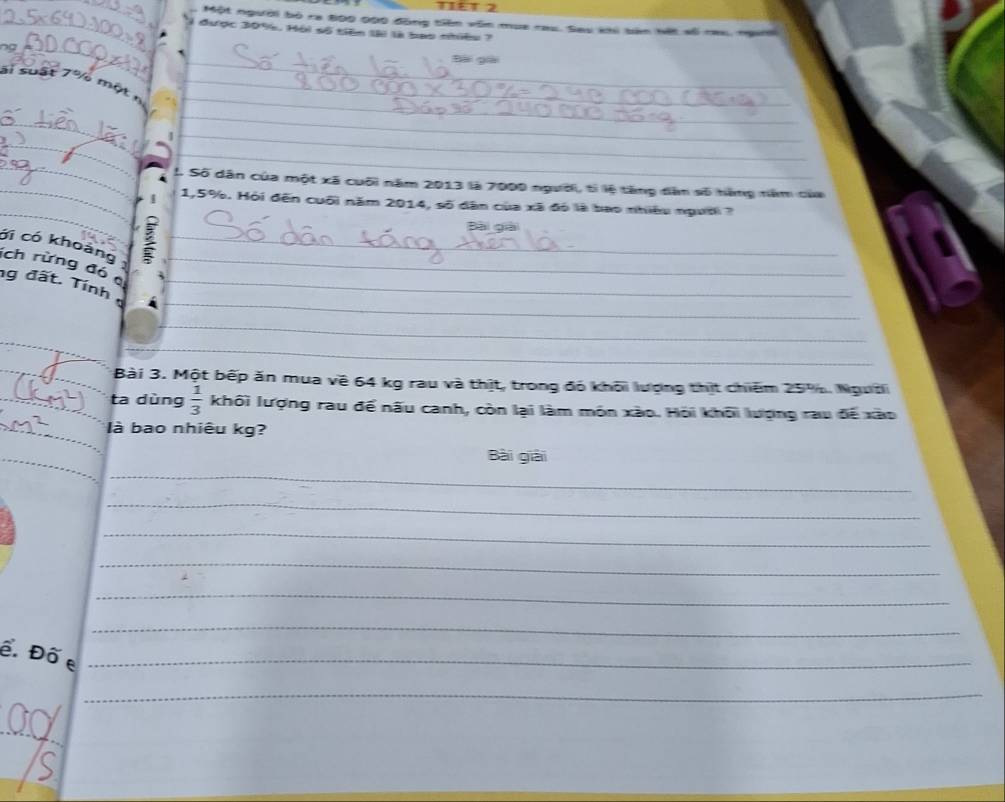 TIẾT 2
Một người bỏ ra 800 000 đồng tiền vốn mua rau. Sau khi bán hết số rau, người
được 30%. Hỏi số tiền lãi là bao nhiêu ?
Bài giải
Số tiền lã là
800 000 x 30% = 240 000 (đồng)
Đáp số: 240 000 đồng
2.5x64).100:8
ng
ãi suất 7% một n
ố tiền lãi
Số dân của một xã cuối năm 2013 là 7000 người, tỉ lệ tăng dân số hằng năm của
1,5%. Hỏi đến cuối năm 2014, số dân của xã đó là bao nhiêu người ?
Bài giải
Số dân táng thên là
ClassMate
ới có khoảng
ích rừng đó
ng đất. Tính
(km²)
m²
Bài 3. Một bếp ăn mua về 64 kg rau và thịt, trong đó khối lượng thịt chiếm 25%. Người
ta dùng 1/3 khối lượng rau để nấu canh, còn lại làm món xào. Hỏi khối lượng rau để xào
là bao nhiêu kg?
Bài giải
ể. Đố e